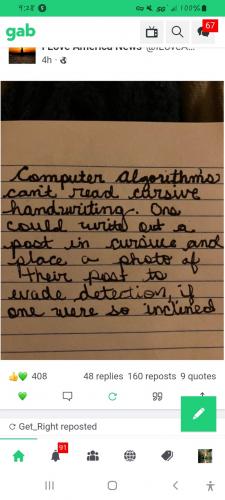 9:28
5G
100%
gab
67
I Love America News
4h
Computer Algorithms
can't read cursive
handwriting. One
could write out a
post in cursive and
place a photo of
their post to
evade detection, if
one were so inclined
408 48 replies 160 reposts 9 quotes
Get_Right reposted
91